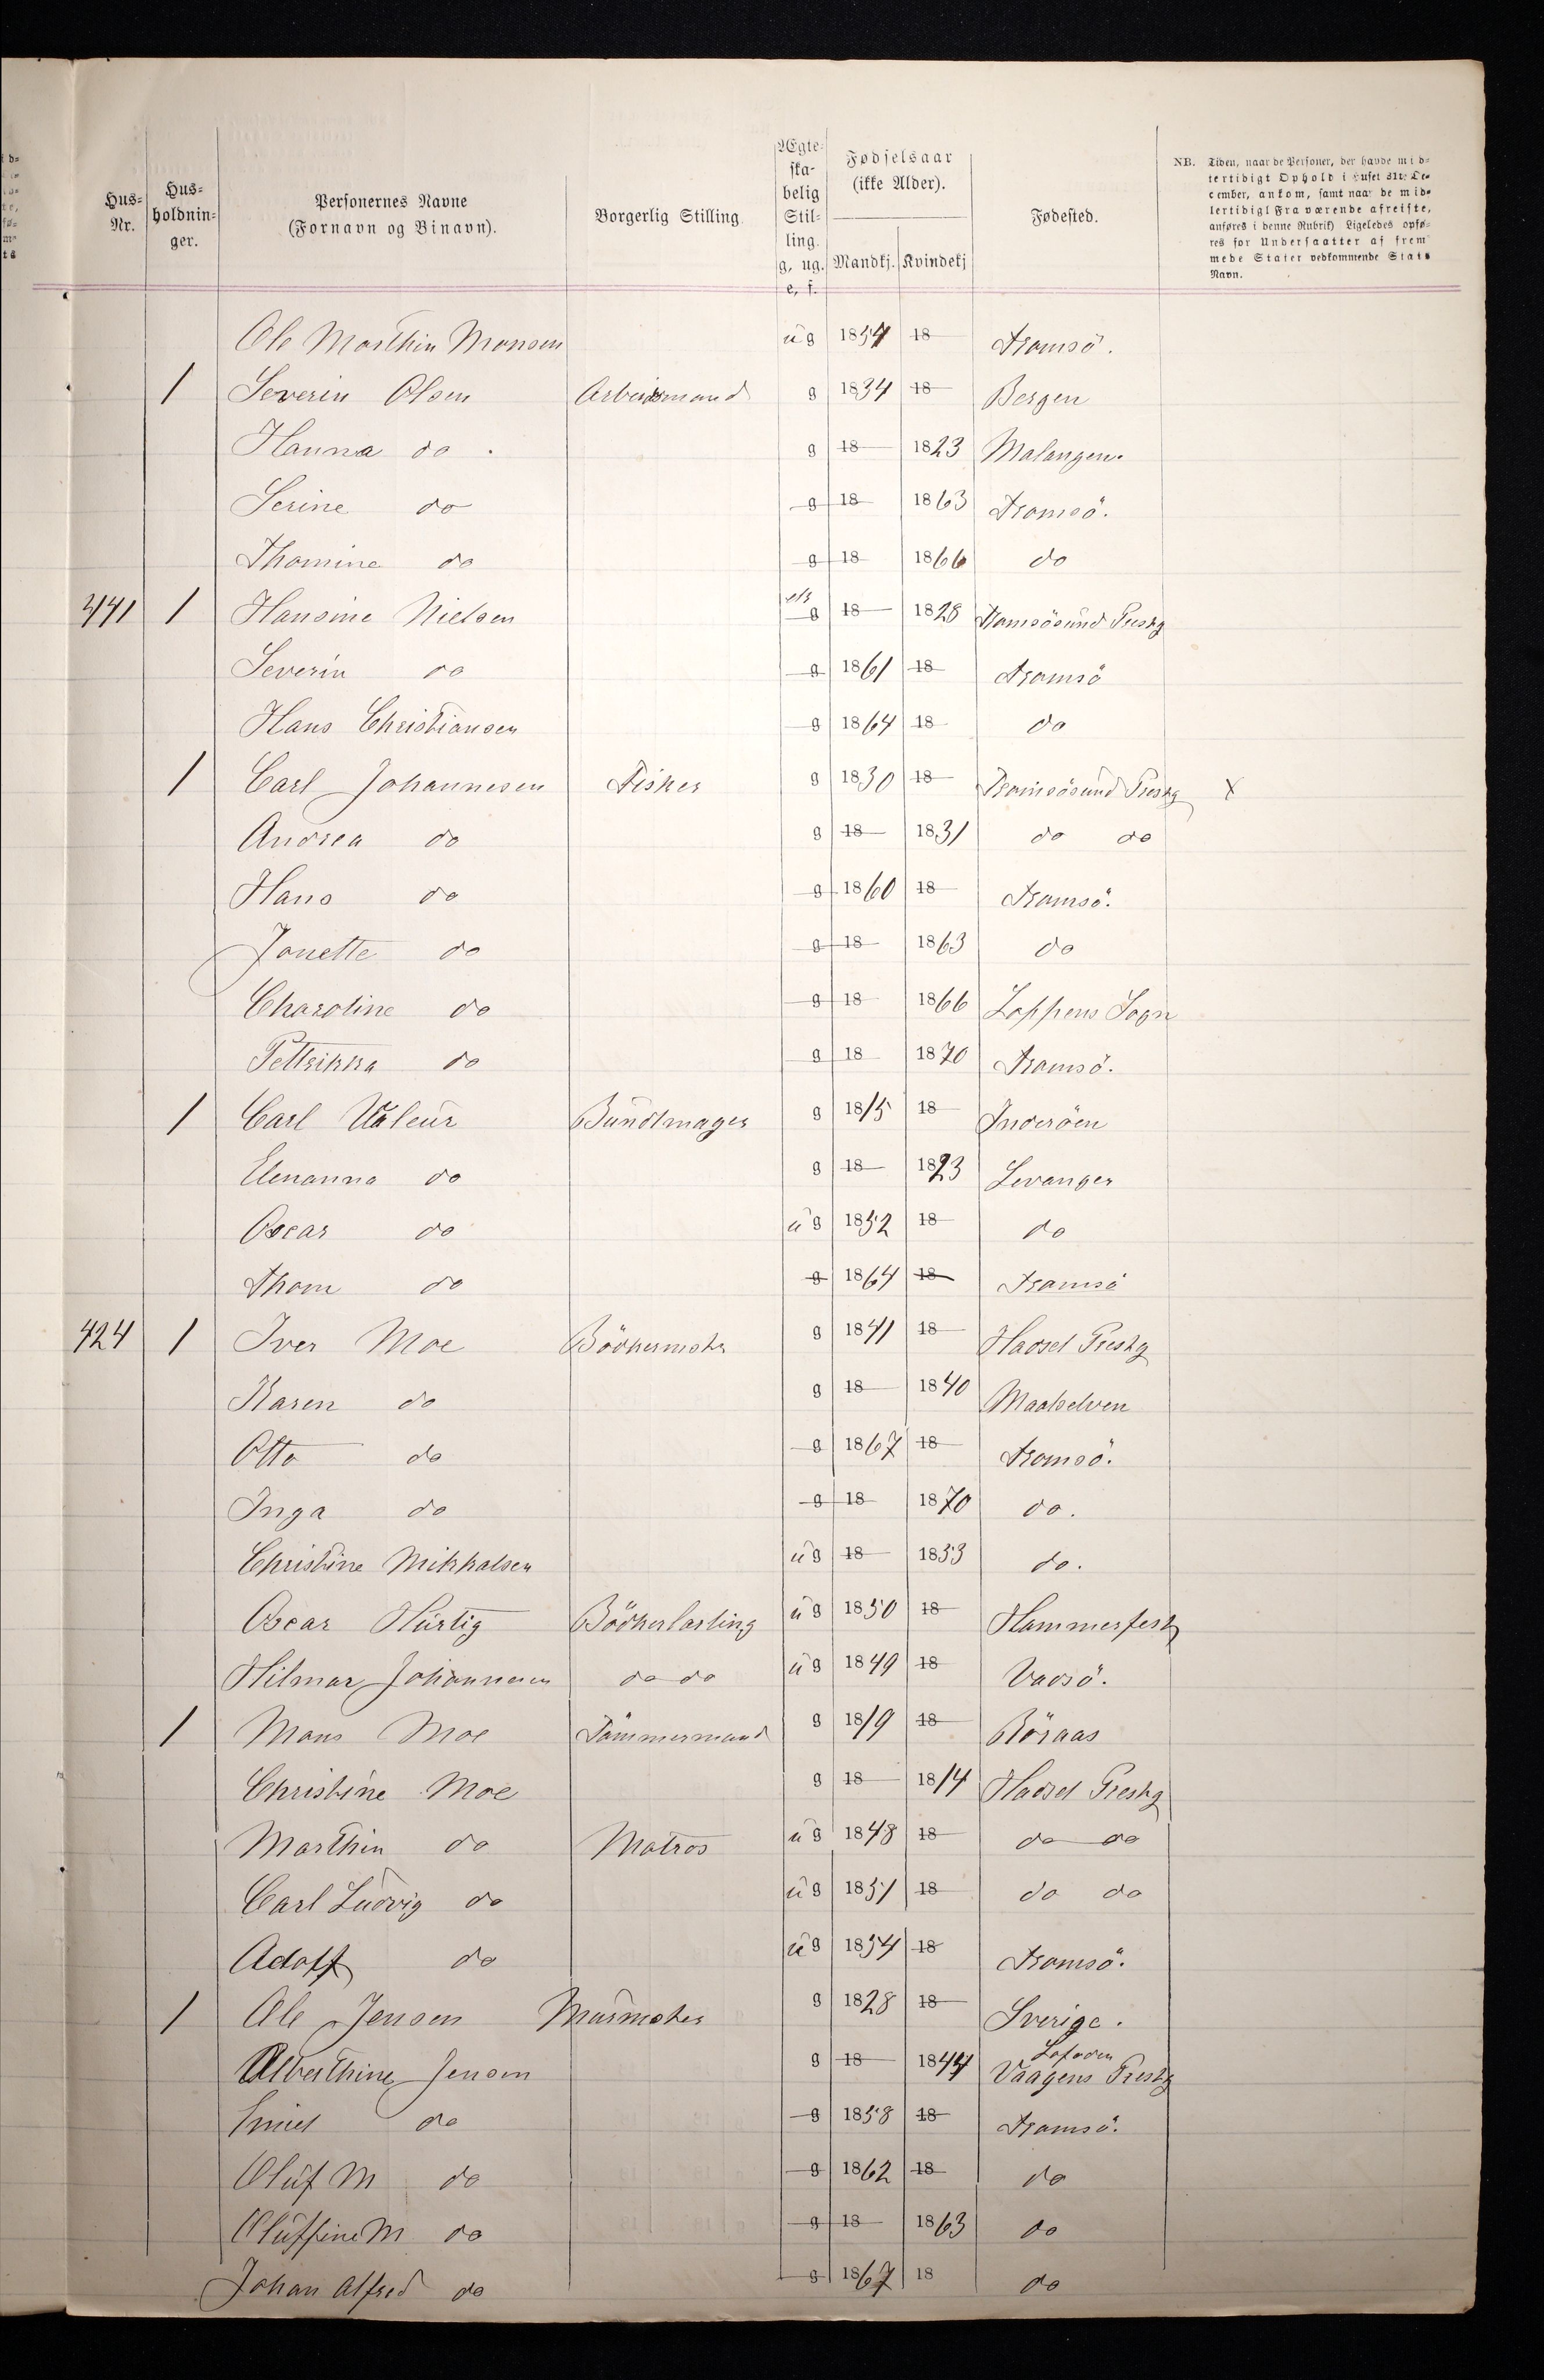 Hus-Nr. Hus-holdnin-ger. Personernes Navne (Fornavn og Binavn). Borgerlig Stilling Ægte-ska-belig Stil-ling. g, ug. e, f. Fødselsaar (ikke Alder). Mandkj. Kvindekj Fødested.
NB. Tiden, naar de Personer, der havde mid-
lertidigt Ophold i Huset 31te De-
cember, ankom, samt naar de mid-
lertidigt Fraværende afreiste,
anføres i denne Rubrik) Ligeledes opfø-
res for Undersaatter af frem
mede Stater vedkommende Stats
Navn.
Ole Marthin Monsen ug 1854 18 Tromsö.
1 Severin Olsen Arbeidsmand g 1834 18 Bergen
Hanna do . g 18 1823 Malangen.
Serine do g 18 1863 Tromsö.
Thomine do g 18 1866 do
441 1 Hansine Nielsen g 18 1828 Tromsösund Prestg
Severin do g 1861 18 Tromsö
Hans Christiansen g 1864 18 do
1 Carl Johannesen Fisker g 1830 18 Tromsösund Prestg X
Andrea do g 18 1831 do do
Hans do g 1860 18 Tromsö.
Jonette do g 18 1863 do
Charotine do g 18 1866 Loppens Sogn
Pettrikka do g 18 1870 Tromsö.
1 Carl Valeur Bundtmager g 1815 18 Inderöen
Elenanna do g 18 1823 Levanger
Oscar do ug 1852 18 do
Thom do g 1864 18 Tromsö
424 1 Iver Moe Bödkermstr g 1841 18 Hadsel Prestg
Karen do g 18 1840 Maalselven
Otto do g 1867 18 Tromsö.
Inga do g 18 1870 do.
Christine Mikkalsen ug 18 1853 do.
Oscar Hurtig Bödkerlærling ug 1850 18 Hammerfest
Hilmar Johannesen do do ug 1849 18 Vadsö.
1 Mons Moe Tömmermand g 1819 18 Röraas
Christine Moe g 18 1814 Hadsel Prestg
Marthin do Matros ug 1848 18 do do
Carl Ludvig do ug 1851 18 do do
Adolf do ug 1854 18 Tromsö.
1 Ole Jensen Murmster g 1828 18 Sverige.
Alberthine Jensen g 18 1844 Lofoden Vaagens Prestg
Emiel do g 1858 18 Tromsö.
Oluf M do g 1862 18 do
Oluffine M do g 18 1863 do
Johan Alfred do g 1867 18 do